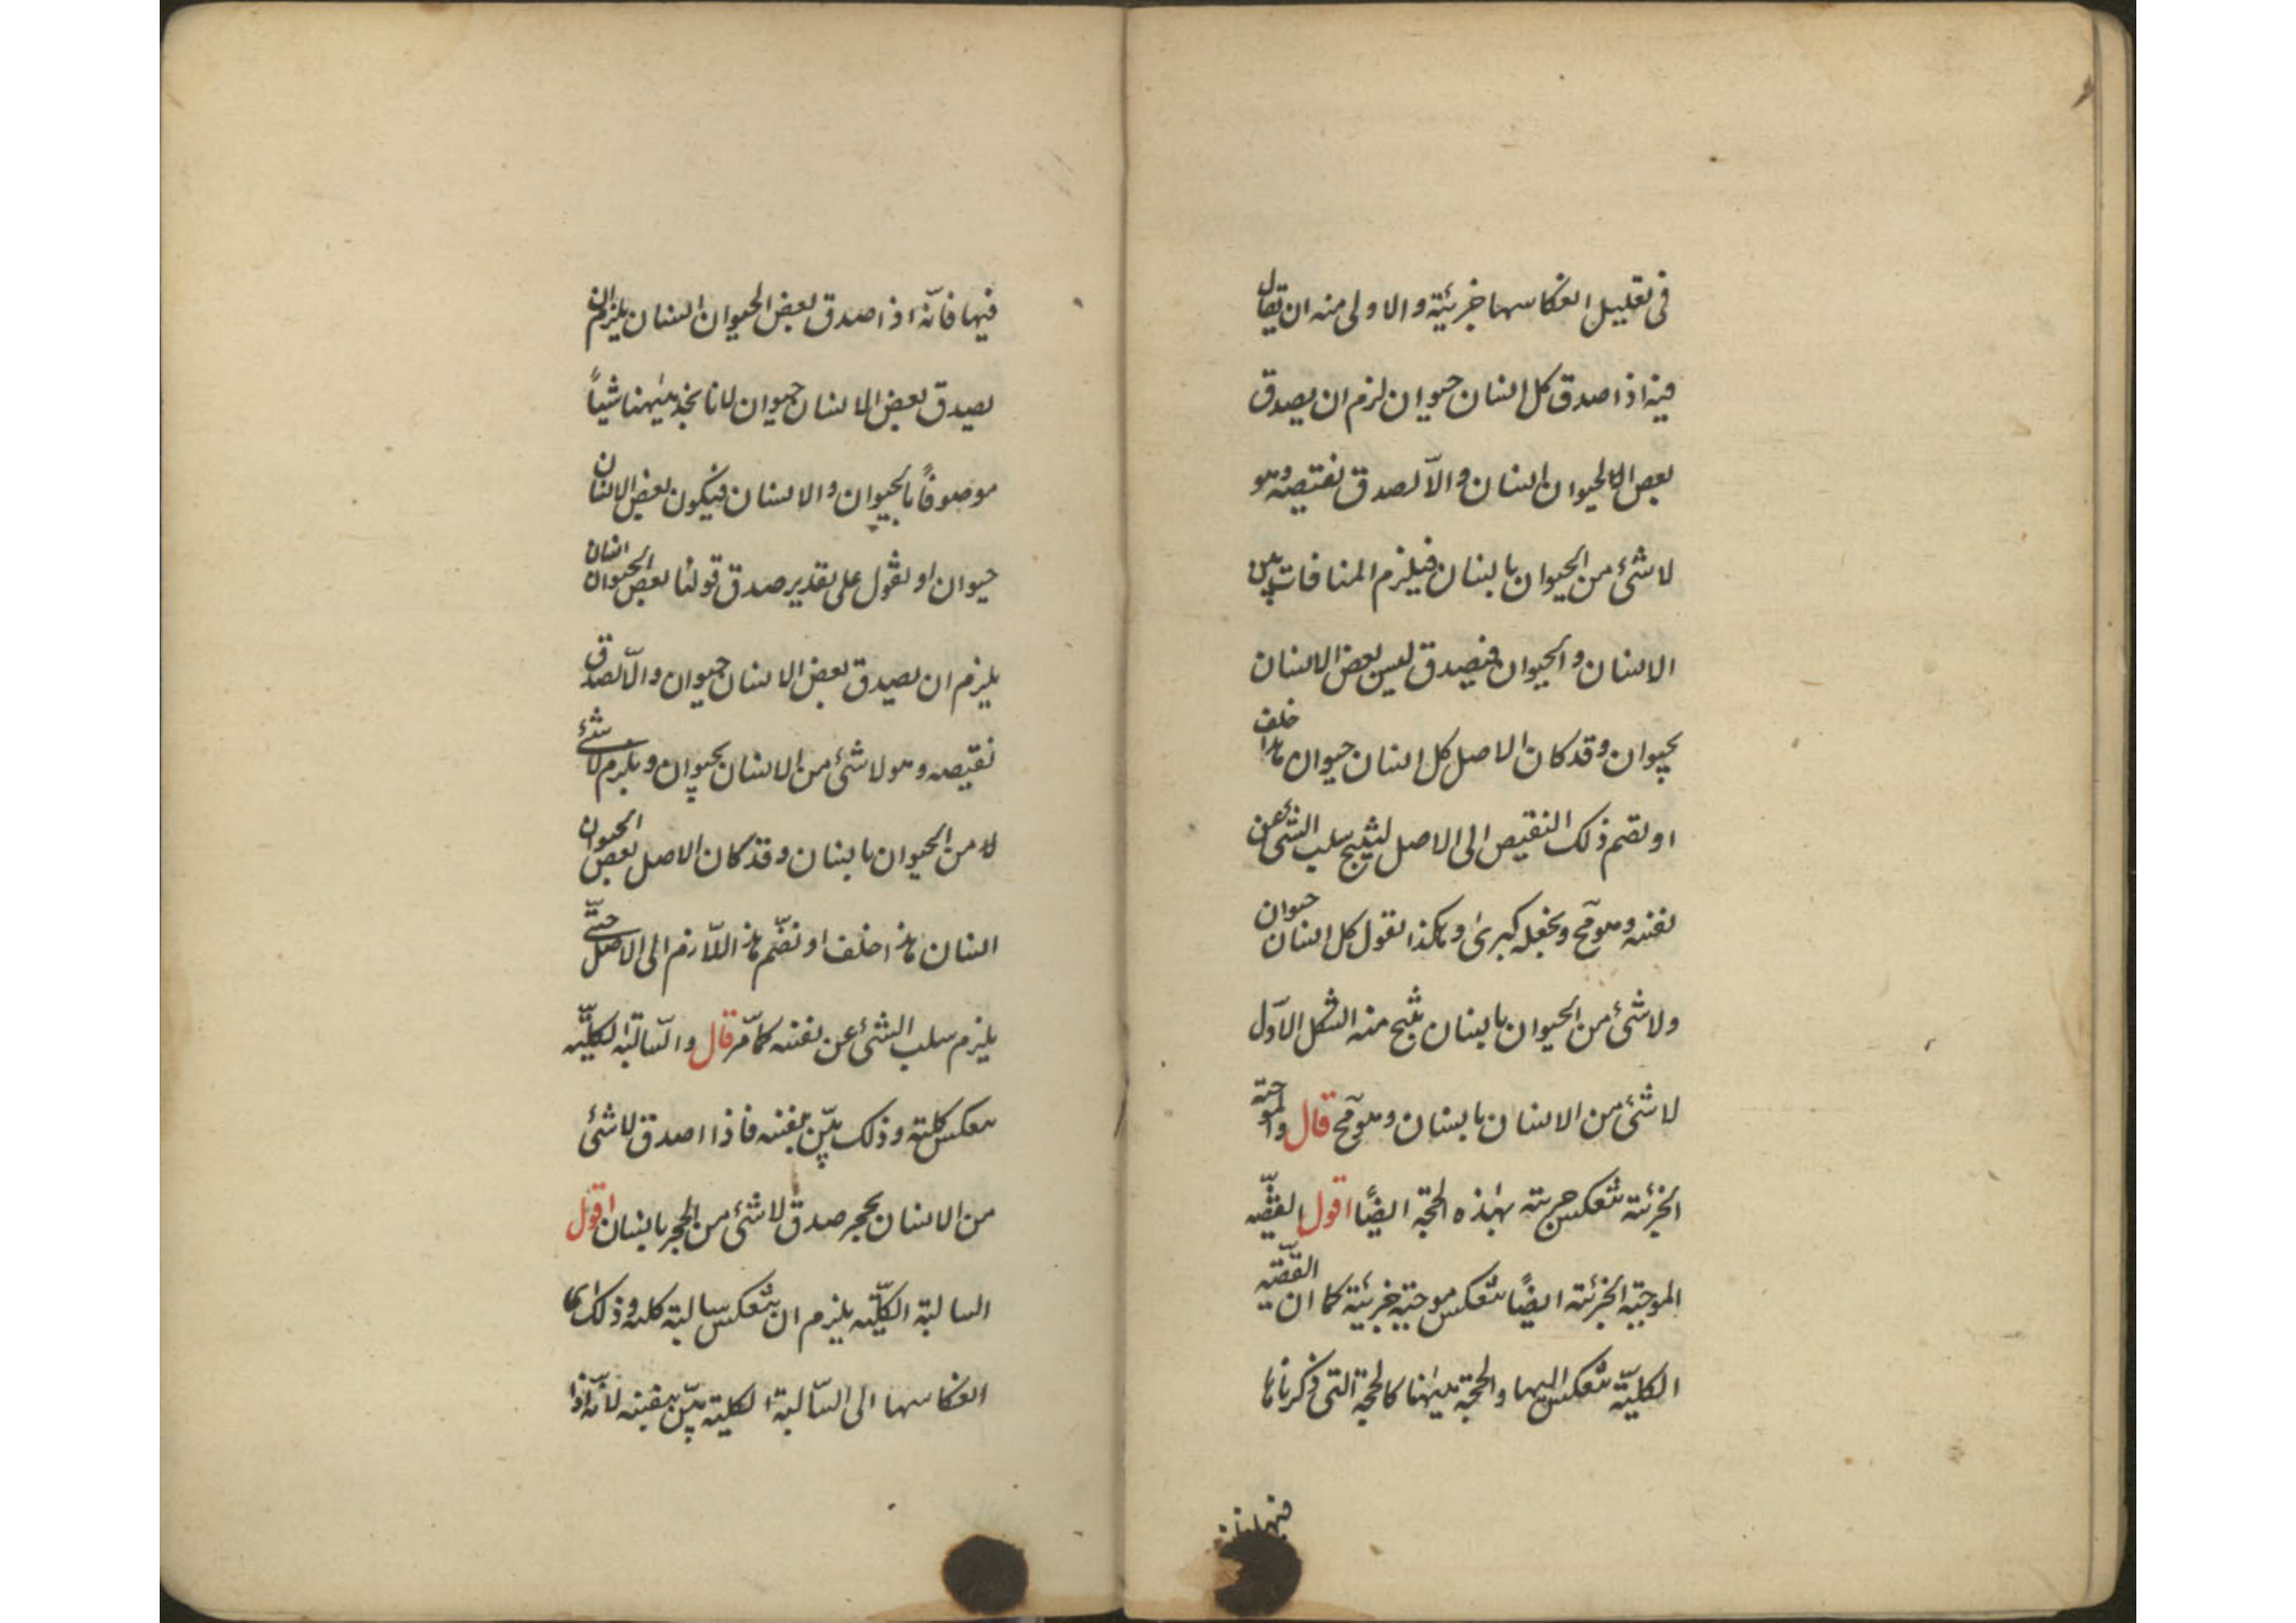 فى تعليل انعكاسها جزئية والاولى منه ان يقال
فيه اذا صدق كل انسان حيوان لزم ان يصدق
بعض الحيوان انسان والّا لصدق نقيضه وهو
لا شئ من الحيوان بانسان فيلزم المنافات بين
الانسان والحيوان فيصدق ليس بعض الانسان
بحيوان وقد كان الاصل كل انسان حيوان هذا خلف
او نضم ذلك النقيض الى الاصل لينتج سلب الشئ عن
نفسه وهو مح ونجعله كبرى وهكذا نقول كل انسان حيوان
ولا شئ من الحيوان بانسان ينتج منه الشكل الاوّل
لا شئ من الانسان بانسان وهو مح قال والموجبة
الجزئية تنعكس جزئية بهذه الحجّة ايضًا اقول القضيّه
الموجبة الجزئية ايضًا تنعكس موجبة جزئية كما ان القضيّه
الكليّة تنعكس اليها والحجة ههنا كالحجة التى ذكرناها
فيها فانه
فيها فانّه اذا صدق بعض الحيوان انسان يلزم ان
يصدق بعض الانسان حيوان لانا نجد ههنا شيئاً
موصوفاً بالحيوان والانسان فيكون بعض الانسان
حيوان او نقول على تقدير صدق قولنا بعض الحيوان انسان
يلزم ان يصدق بعض الانسان حيوان والّا لصدق
نقيضه وهو لا شئ من الانسان بحيوان ويلزم لا شئ
لا من الحيوان بانسان وقد كان الاصل بعض الحيوان
انسان هذا خلف او نضّم هذا اللّازم الى الاصل حتّى
يلزم سلب الشئ عن نفسه كما مّر قال والسّالبة الكليّه
تنعكس كلية وذلك بيّن بنفسه فاذا اصدق لا شئ
من الانسان بحجر صدق لا شئ من الحجر بانسان اقول
السالبة الكليّه يلزم ان تنعكس سالبة كلية وذلك اى
انعكاسها الى السّالبة الكلية بيّن بنفسه لانّه اذا